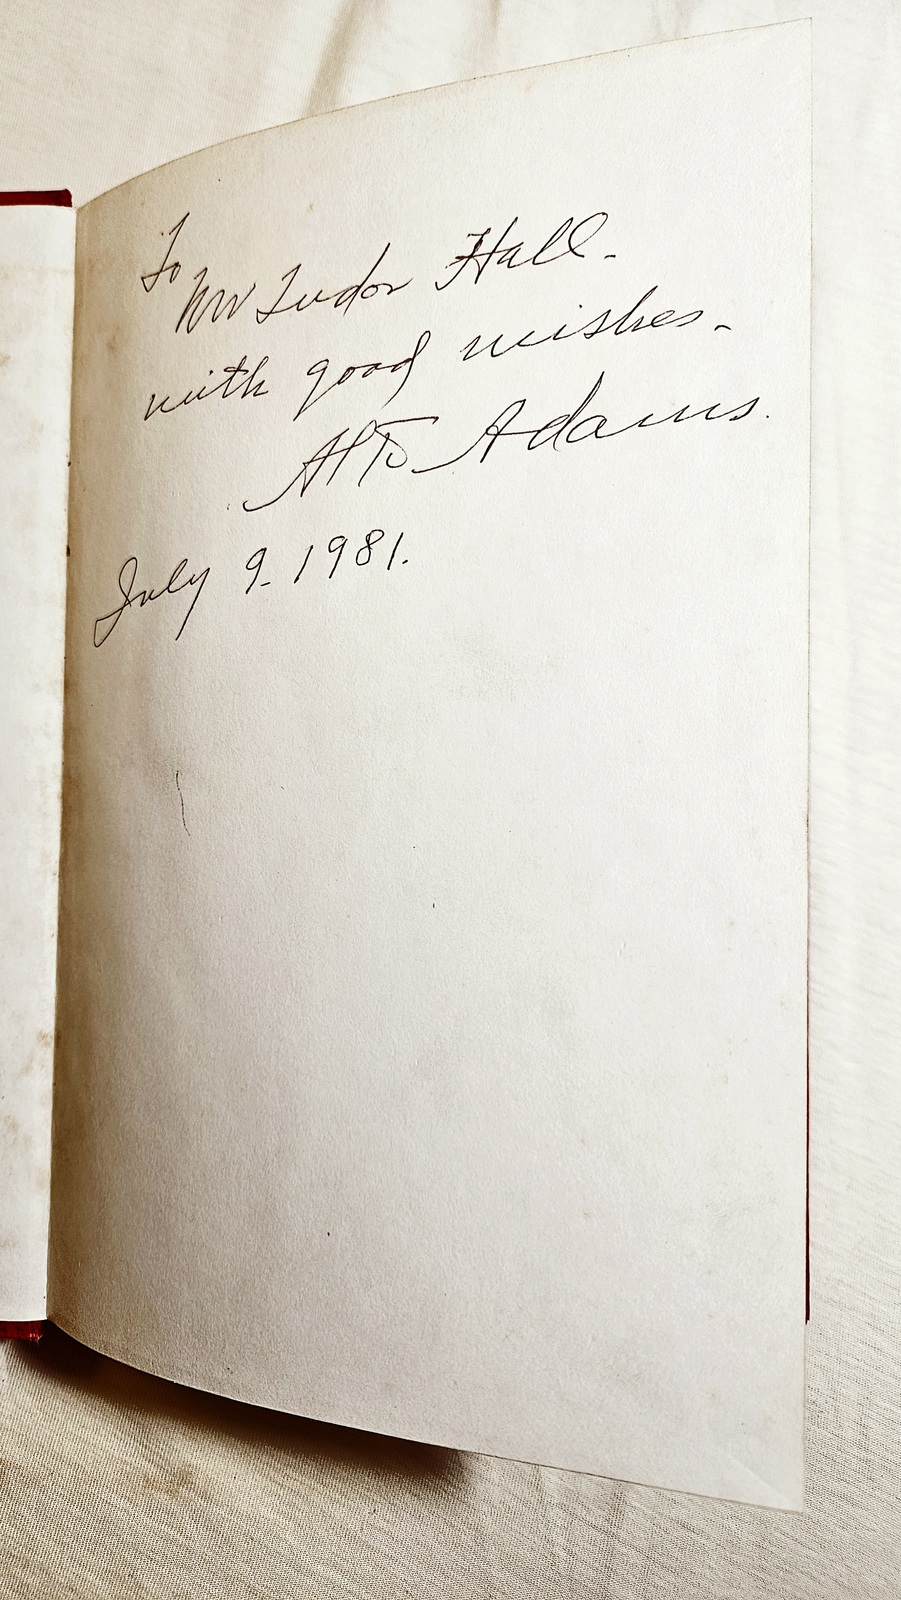 To
Mr Tudor Hall.
with good wishes.
Alto Adams.
July 9. 1981.